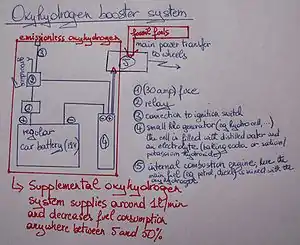 Oxyhydrogen booster system
emissionless oxyhydrogen
fossil fuels
main power transfer
to wheels
5
3
2
1
4
regular
car battery (12V)
① (30 amp) fuse
② relay
③ connection to ignition switch
④ small hho generator (eg hydro cell, ...)
the cell is filled with distilled water and
an electrolyte (baking soda or sodium/
potassium hydroxide)
⑤ internal combustion engine, here the
main fuel (eg petrol, diesel) is mixed with the
oxyhydrogen
↳ Supplemental oxyhydrogen
system supplies around 1l/min
and decreases fuel consumption
anywhere between 5 and 50%